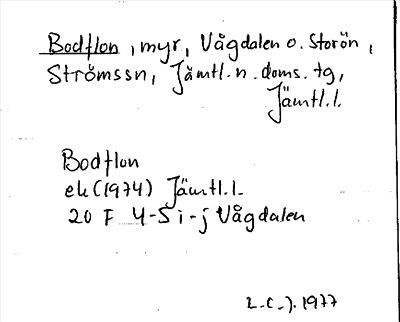 Bodflon, myr, Vågdalen o. Storön,
Strömssn, Jämtl. n. doms. tg,
Jämtl.l.
Bodflon
ek (1974) Jämtl.l.
20 F 4-5 i-j Vågdalen
L.C.J. 1977